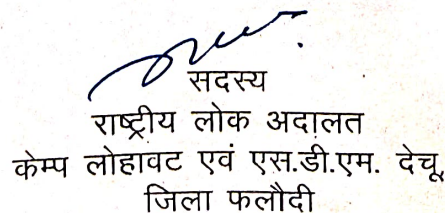 सदस्य
राष्ट्रीय लोक अदालत
केम्प लोहावट एवं एस.डी.एम. देचू,
जिला फलौदी